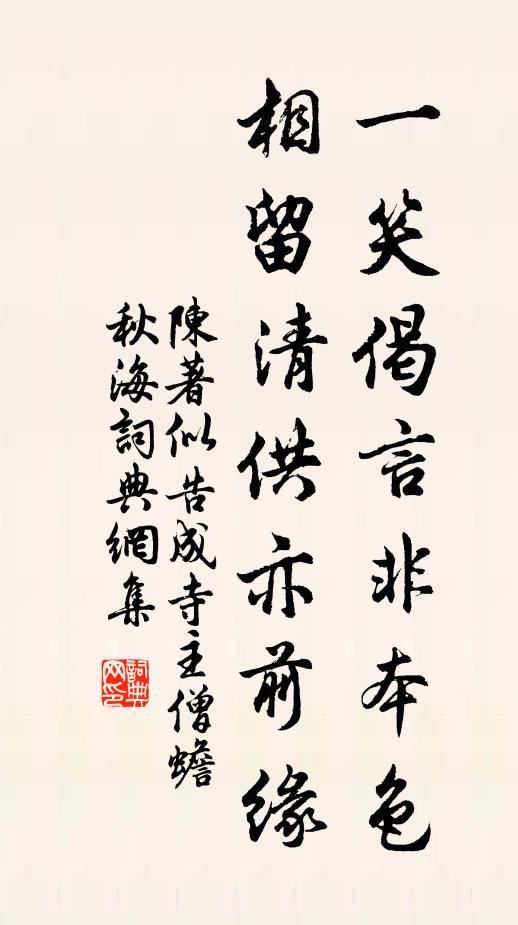 一笑偈言非本色
相留清供亦前緣
陳著似告成寺主僧蟾
秋海詞典網集
詞典
网印